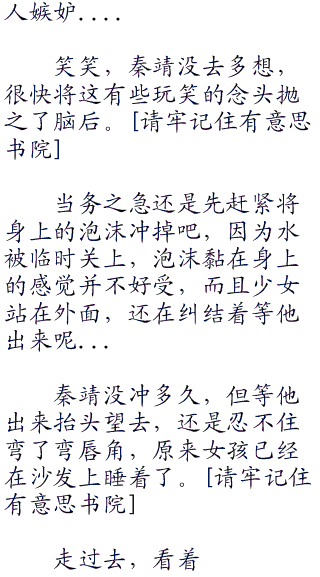 人嫉妒....
笑笑，秦靖没去多想，
很快将这有些玩笑的念头抛
之了脑后。[请牢记住有意思
书院]
当务之急还是先赶紧将
身上的泡沫冲掉吧，因为水
被临时关上，泡沫黏在身上
的感觉并不好受，而且少女
站在外面，还在纠结着等他
出来呢...
秦靖没冲多久，但等他
出来抬头望去，还是忍不住
弯了弯唇角，原来女孩已经
在沙发上睡着了。[请牢记住
有意思书院]
走过去，看着